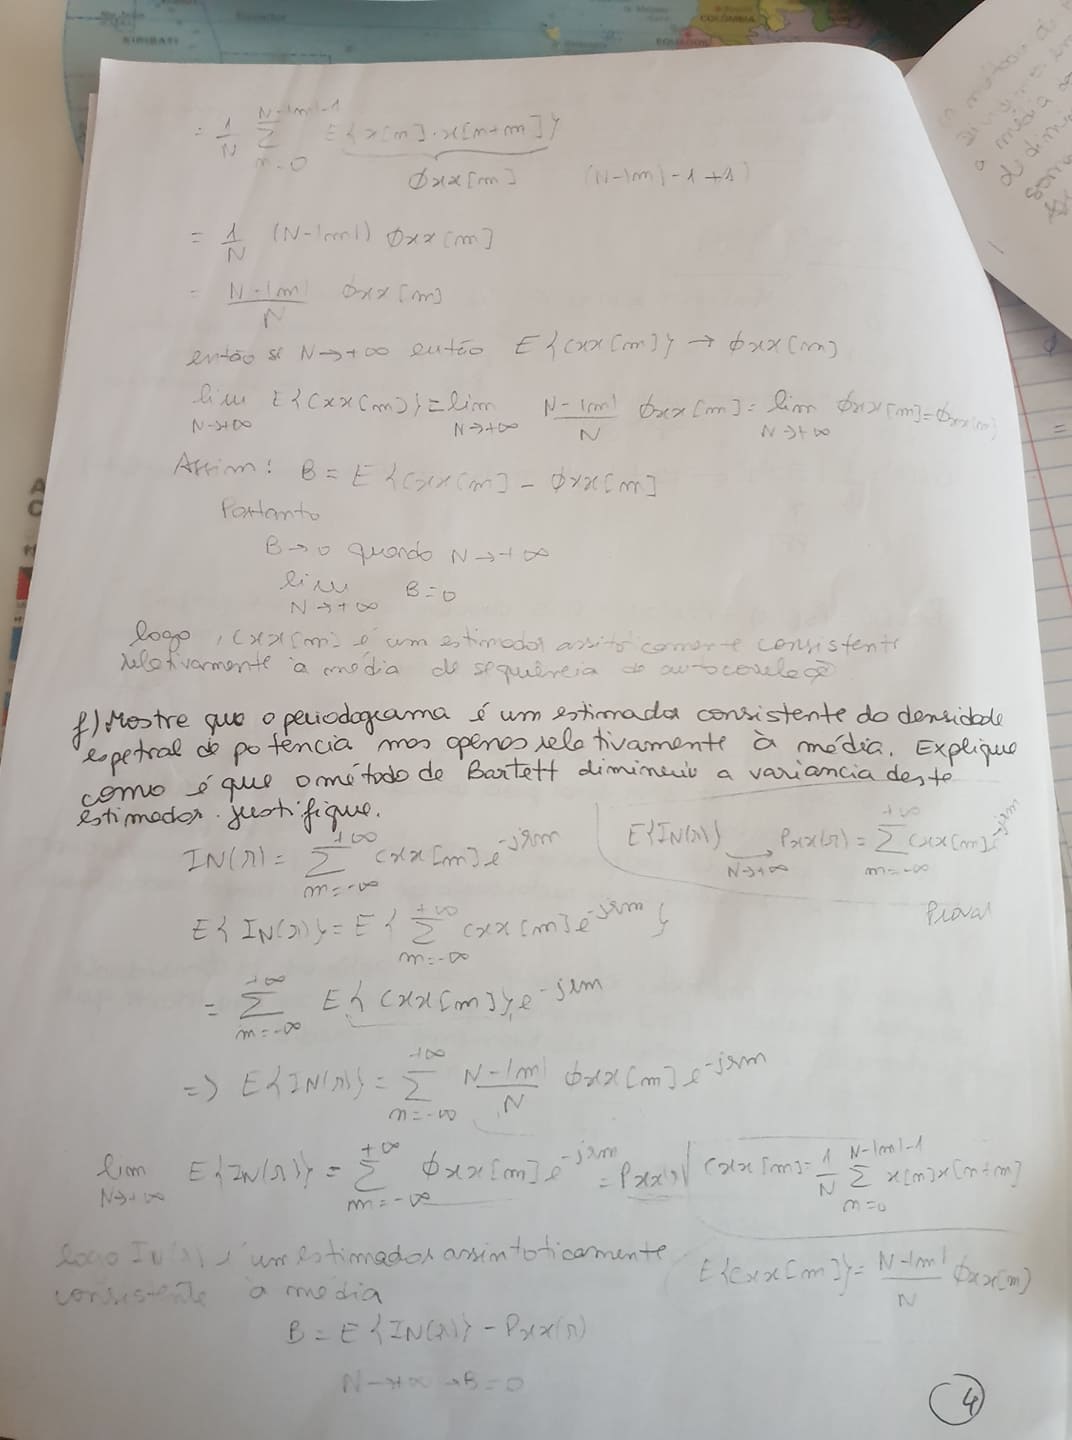 KIRIBATI
COLÔMBIA
= 1/N Σ_{n=0}^{N-|m|-1} E{x[m]·x[n+m]}
ϕxx[m] (N-|m|-1+1)
= 1/N (N-|m|) ϕxx[m]
= N-|m|/N ϕxx[m]
então se N→+∞ então E{Cxx[m]} → ϕxx[m]
lim_{N→+∞} E{Cxx[m]} = lim_{N→+∞} N-|m|/N ϕxx[m] = lim_{N→+∞} ϕxx[m] = ϕxx[m]
Assim: B = E{Cxx[m] - ϕxx[m]
Portanto
B→0 quando N→+∞
lim_{N→+∞} B=0
logo, Cxx[m] é um estimador assitóticamente consistente
relativamente à média de sequência de autocorrelação
f) Mostre que o periodograma é um estimador consistente do densidade
espetral de potência mas apenas relativamente à média. Explique
como é que o método de Bartett diminuiu a variancia deste
estimador. Justifique.
IN(Ω) = Σ_{m=-∞}^{+∞} Cxx[m] e^{-jΩm}
E{IN(Ω)} →_{N→+∞} Pxx(Ω) = Σ_{m=-∞}^{+∞} Cxx[m] e^{-jΩm}
Provar
E{IN(Ω)} = E{ Σ_{m=-∞}^{+∞} Cxx[m] e^{-jΩm} }
= Σ_{m=-∞}^{+∞} E{Cxx[m]} e^{-jΩm}
=> E{IN(Ω)} = Σ_{m=-∞}^{+∞} N-|m|/N ϕxx[m] e^{-jΩm}
lim_{N→+∞} E{IN(Ω)} = Σ_{m=-∞}^{+∞} ϕxx[m] e^{-jΩm} = Pxx(Ω)
Cxx[m] = 1/N Σ_{m=0}^{N-|m|-1} x[m]x[n+m]
logo IN(Ω) é um estimador assintoticamente
consistente à média
E{Cxx[m]} = N-|m|/N ϕxx[m]
B = E{IN(Ω)} - Pxx(Ω)
N→+∞ → B=0
4